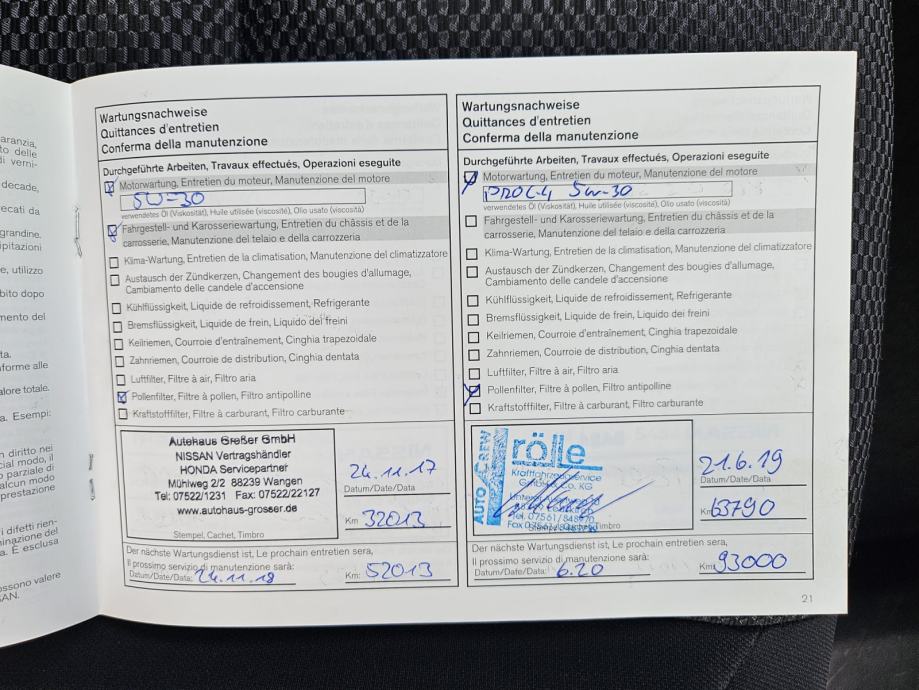 aranzia,
to delle
di verni-
decade,
ecati da
grandine.
ipitazioni
e, utilizzo
bito dopo
mento del
ta.
forme alle
alore totale.
a. Esempi:
n diritto nei
cial modo, il
o parziale di
alcun modo
prestazione
i difetti rien-
minazione del
a. È esclusa
ossono valere
SAN.
Wartungsnachweise
Quittances d'entretien
Conferma della manutenzione
Durchgeführte Arbeiten, Travaux effectués, Operazioni eseguite
Motorwartung, Entretien du moteur, Manutenzione del motore
5W-30
verwendetes Öl (Viskosität), Huile utilisée (viscosité), Olio usato (viscosità)
Fahrgestell- und Karosseriewartung, Entretien du châssis et de la
carrosserie, Manutenzione del telaio e della carrozzeria
Klima-Wartung, Entretien de la climatisation, Manutenzione del climatizzatore
Austausch der Zündkerzen, Changement des bougies d'allumage,
Cambiamento delle candele d'accensione
Kühlflüssigkeit, Liquide de refroidissement, Refrigerante
Bremsflüssigkeit, Liquide de frein, Liquido dei freini
Keilriemen, Courroie d'entraînement, Cinghia trapezoidale
Zahnriemen, Courroie de distribution, Cinghia dentata
Luftfilter, Filtre à air, Filtro aria
Pollenfilter, Filtre à pollen, Filtro antipolline
Kraftstofffilter, Filtre à carburant, Filtro carburante
Autohaus Größer GmbH
NISSAN Vertragshändler
HONDA Servicepartner
Mühlweg 2/2 88239 Wangen
Tel: 07522/1231 Fax: 07522/22127
www.autohaus-grosser.de
Stempel, Cachet, Timbro
24.11.17
Datum/Date/Data
Km 32013
Der nächste Wartungsdienst ist, Le prochain entretien sera,
Il prossimo servizio di manutenzione sarà:
Datum/Date/Data: 24.11.18 Km: 52013
Wartungsnachweise
Quittances d'entretien
Conferma della manutenzione
Durchgeführte Arbeiten, Travaux effectués, Operazioni eseguite
Motorwartung, Entretien du moteur, Manutenzione del motore
5W-30
verwendetes Öl (Viskosität), Huile utilisée (viscosité), Olio usato (viscosità)
Fahrgestell- und Karosseriewartung, Entretien du châssis et de la
carrosserie, Manutenzione del telaio e della carrozzeria
Klima-Wartung, Entretien de la climatisation, Manutenzione del climatizzatore
Austausch der Zündkerzen, Changement des bougies d'allumage,
Cambiamento delle candele d'accensione
Kühlflüssigkeit, Liquide de refroidissement, Refrigerante
Bremsflüssigkeit, Liquide de frein, Liquido dei freini
Keilriemen, Courroie d'entraînement, Cinghia trapezoidale
Zahnriemen, Courroie de distribution, Cinghia dentata
Luftfilter, Filtre à air, Filtro aria
Pollenfilter, Filtre à pollen, Filtro antipolline
Kraftstofffilter, Filtre à carburant, Filtro carburante
AUTO CREW
rölle
Kraftfahrzeugservice
GmbH & Co. KG
Tel. 07561/848970
Cachet, Timbro
21.6.19
Datum/Date/Data
Km 63790
Der nächste Wartungsdienst ist, Le prochain entretien sera,
Il prossimo servizio di manutenzione sarà:
Datum/Date/Data: 6.20 Km: 93000
21